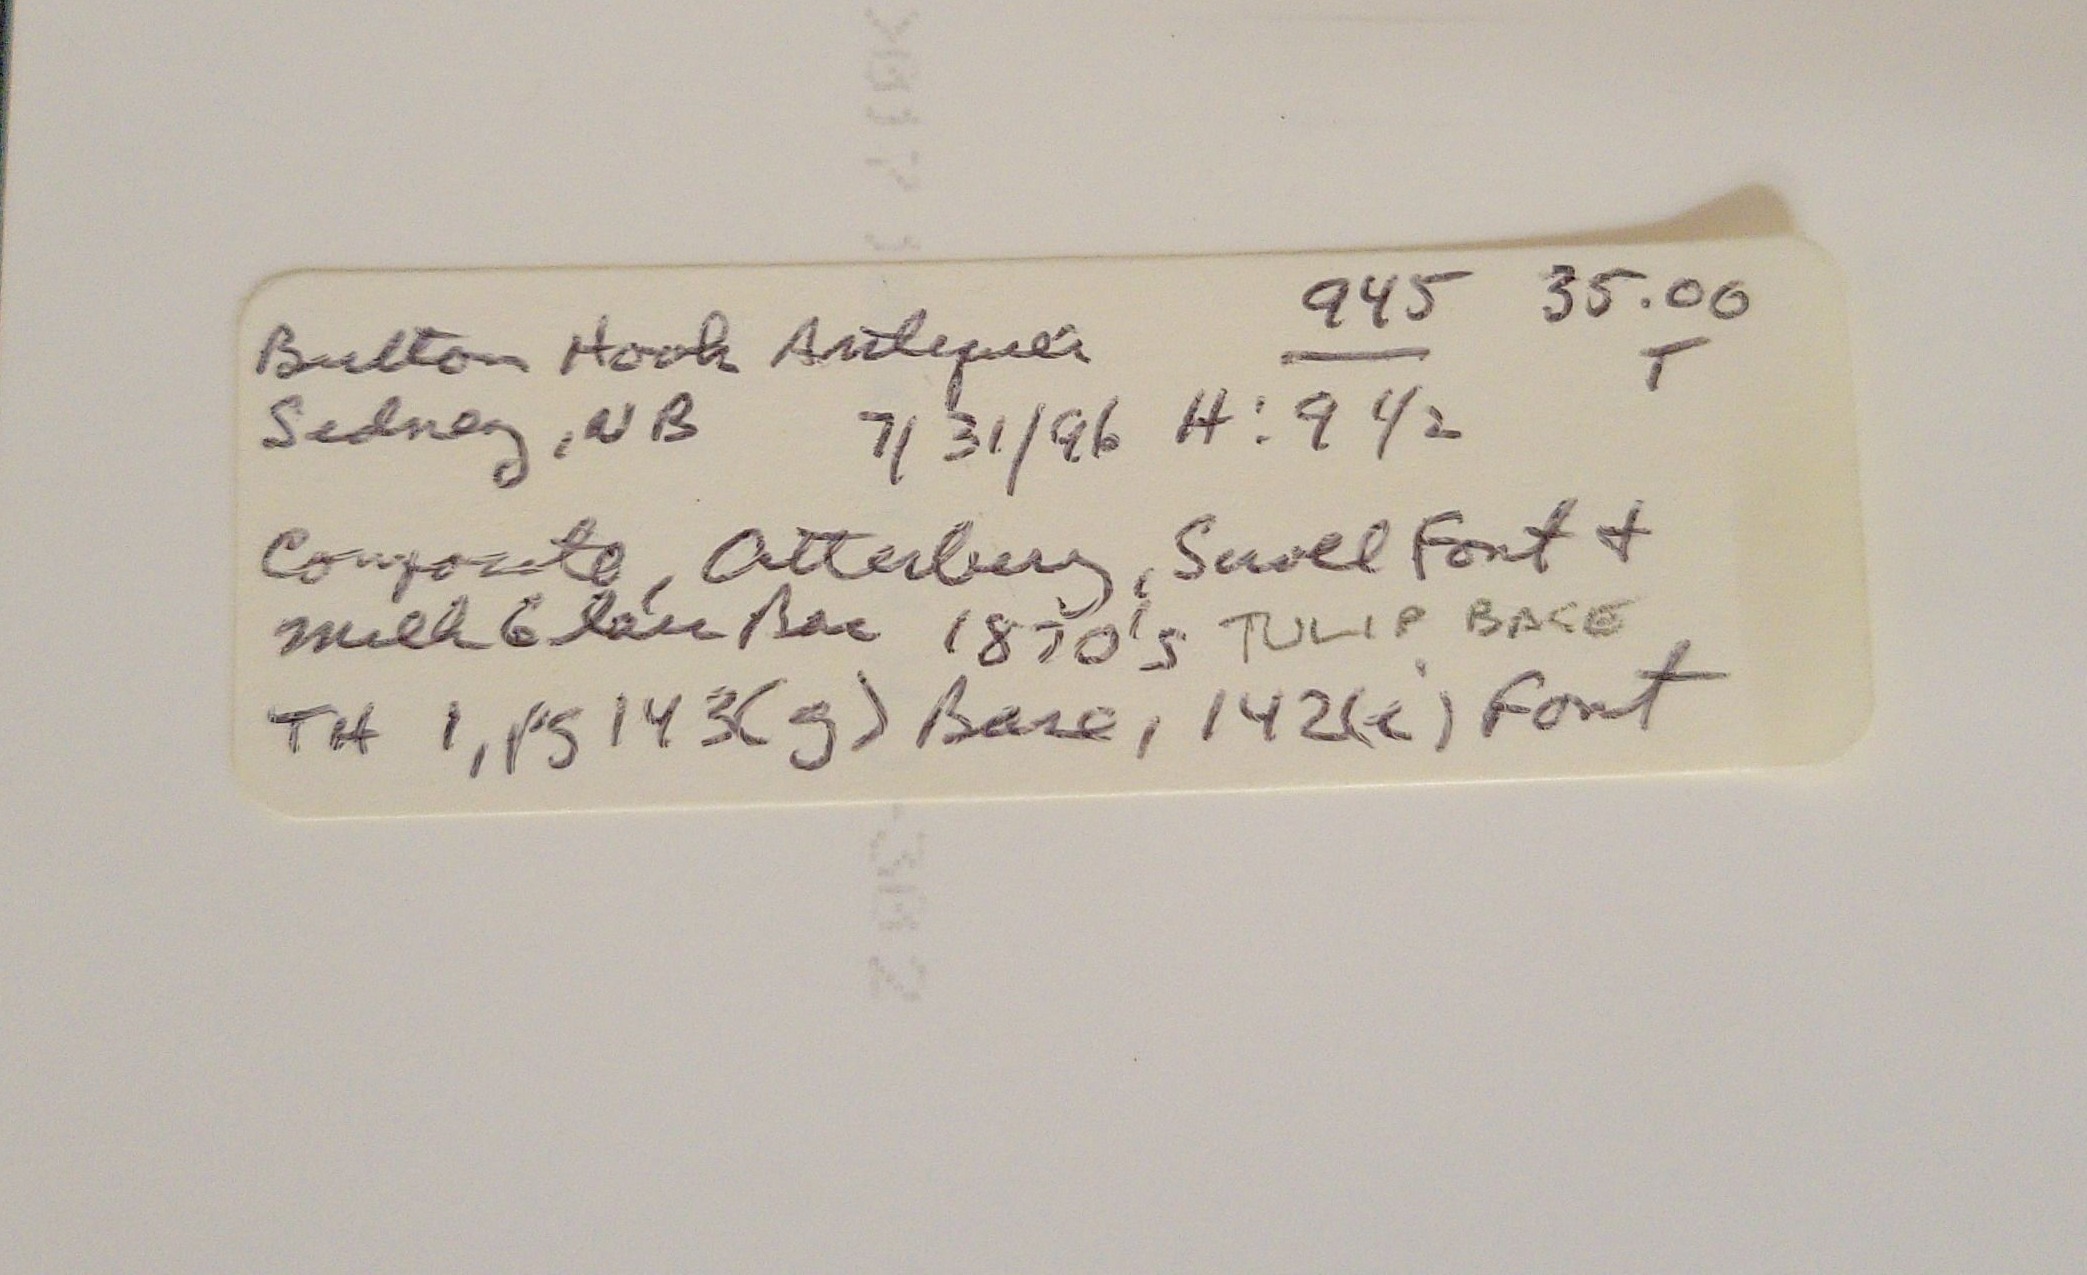 945 35.00
Button Hook Antiques T
Sidney, NB 7/31/96 H: 9 1/2
Composite, Atterbury, Scroll Font +
Milk Glass Base 1870's TULIP BASE
TH 1, pg 143(g) Base, 142(e) Font